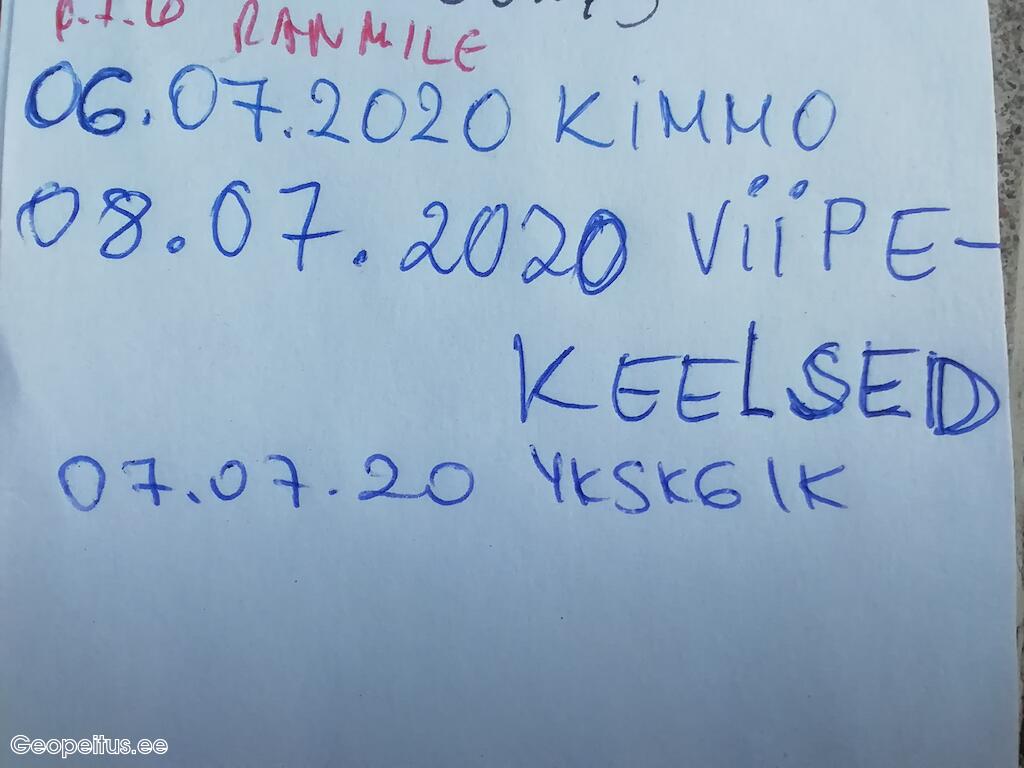 RANMILE
06.07.2020 KIMMO
08.07.2020 VIIPE-
KEELSED
07.07.20 YKSKGIK
Geopeitus.ee